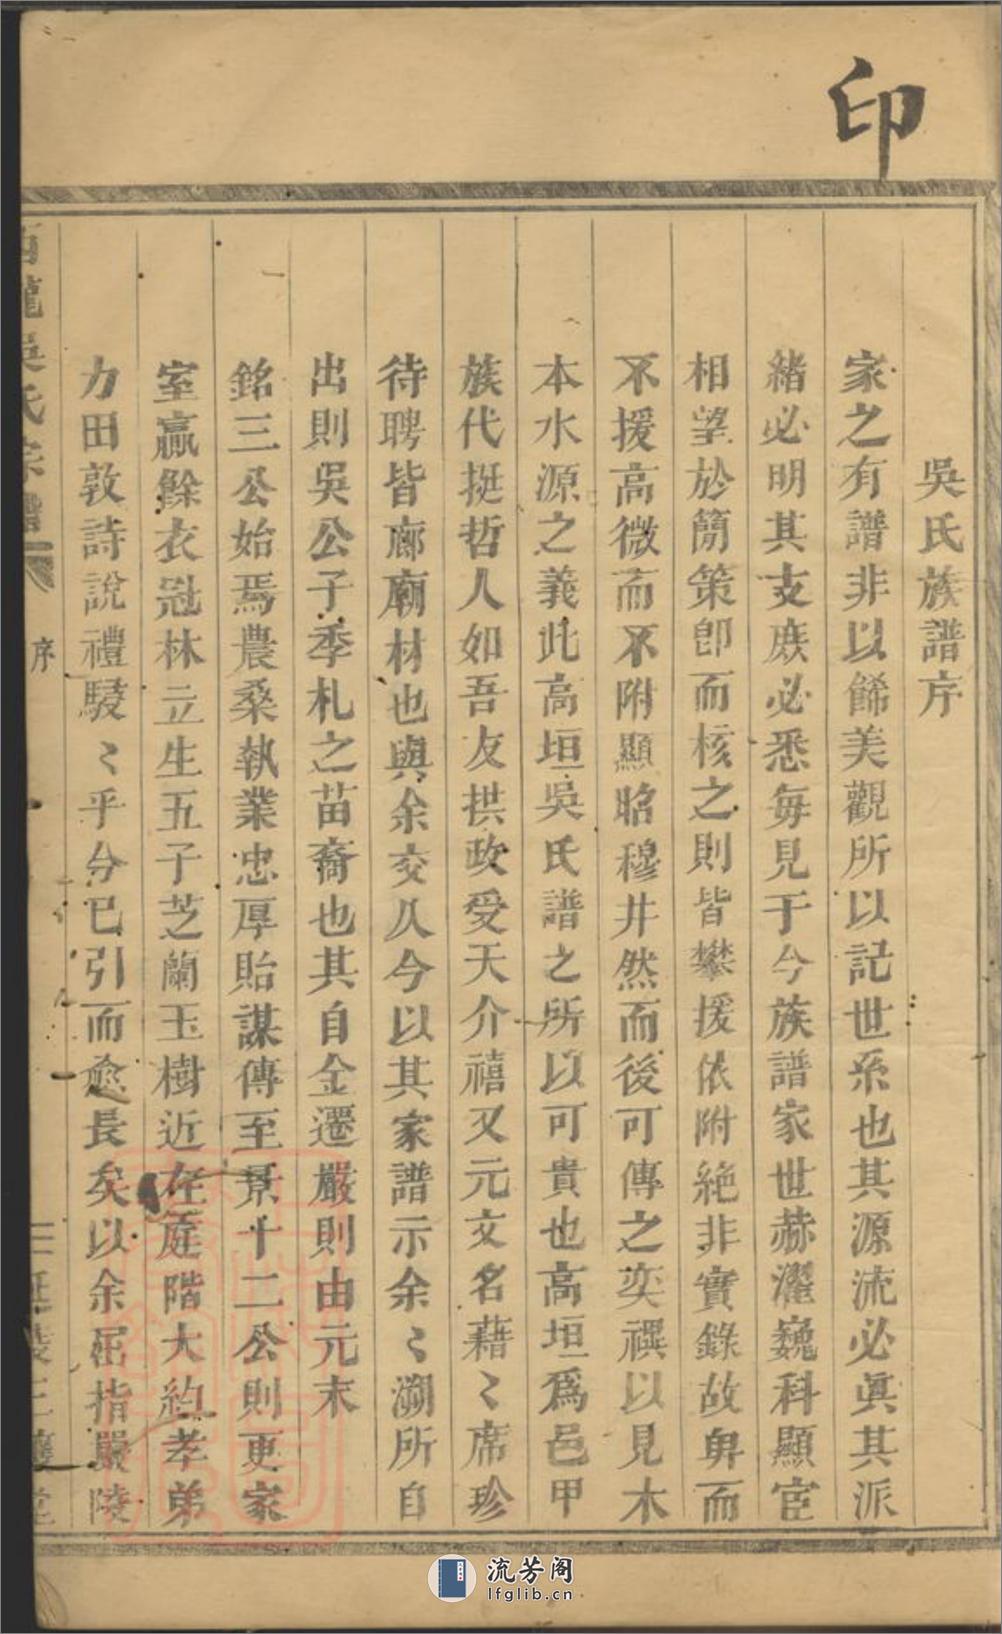 印
吳氏族譜序
家之有譜非以餙美觀所以記世系也其源流必眞其派
緖必明其支庻必悉每見于今族譜家世赫濯巍科顯宦
相望於簡策卽而核之則皆攀援依附絶非實錄故卑而
不援高微而不附顯昭穆井然而後可傳之奕禩以見木
本水源之義此高垣吳氏譜之所以可貴也高垣爲邑甲
族代挺哲人如吾友拱政受天介禧又元文名藉〻席珍
待聘皆廊廟材也與余交久今以其家譜示余〻溯所自
出則吳公子季札之苗裔也其自金遷嚴則由元末
銘三公始焉農桑執業忠厚貽謀傳至景十二公則更家
室贏餘衣冠林立生五子芝蘭玉樹近在庭階大約孝弟
力田敦詩說禮駸〻乎分已引而愈長矣以余屈指嚴陵
龍吳氏宗譜
序
三讓堂
流芳阁
lfglib.cn